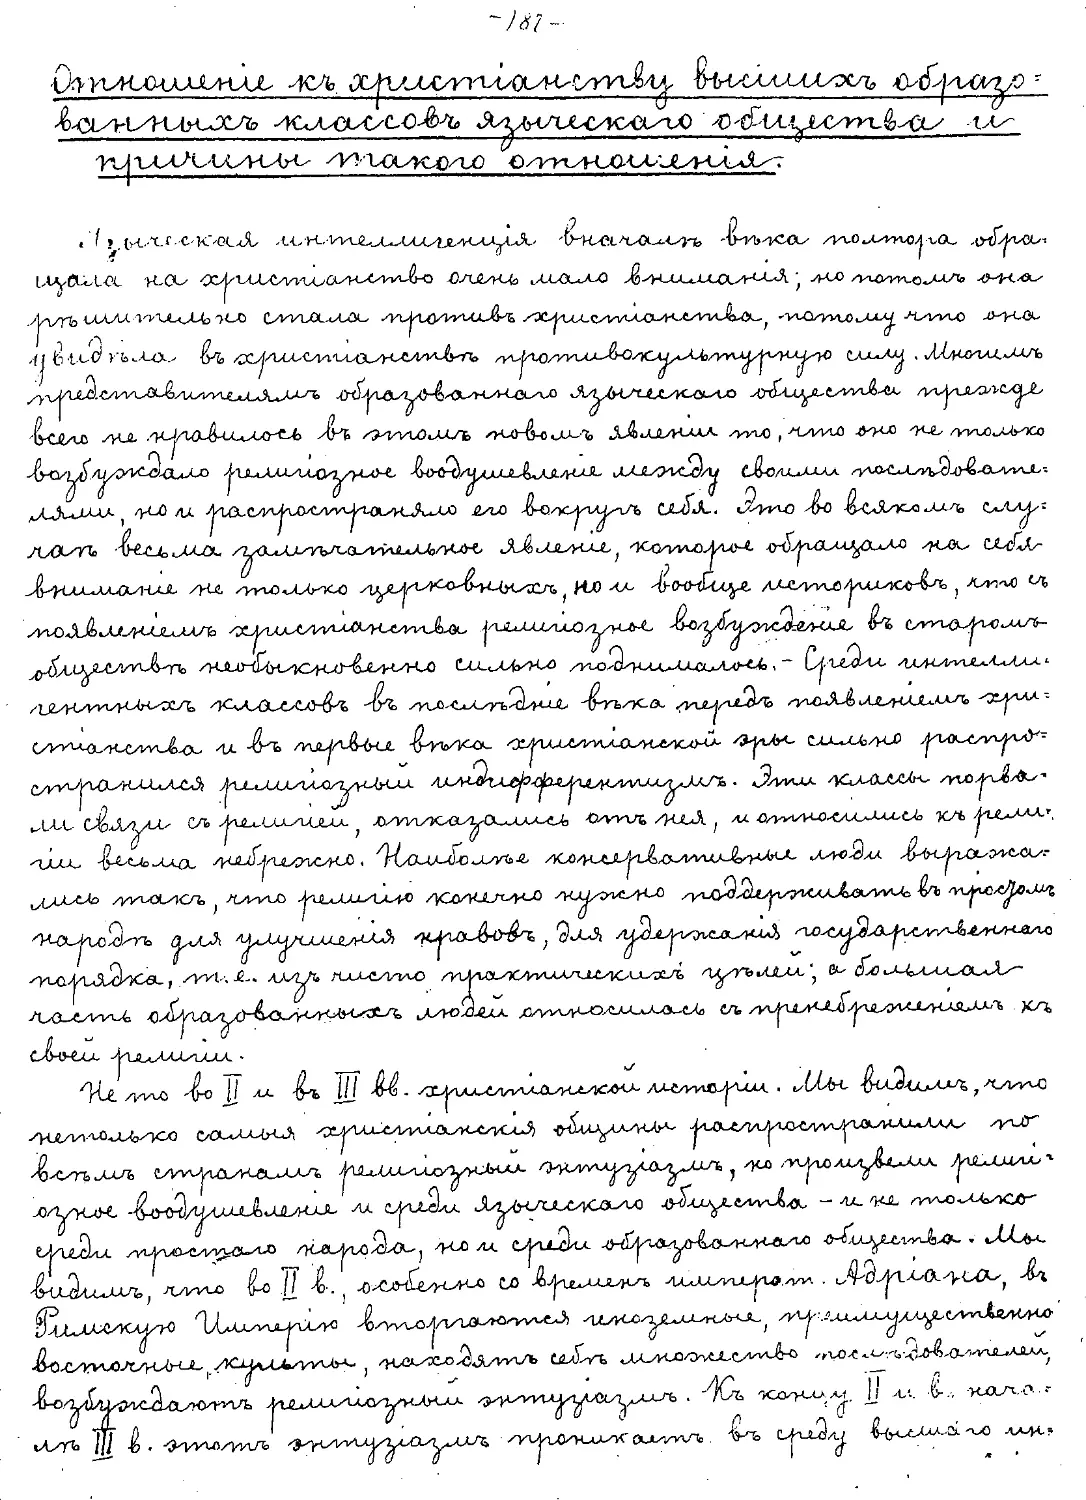 -187-
Отношеніе къ христіанству высшихъ образо=
ванныхъ классовъ языческаго общества и
причины такого отношенія.
Языческая интеллигенція вначалѣ вѣка полтора обра=
щала на христіанство очень мало вниманія; но потомъ она
рѣшительно стала противъ христіанства, потому что она
увидѣла въ христіанствѣ противокультурную силу. Многимъ
представителямъ образованнаго языческаго общества прежде
всего не нравилось въ этомъ новомъ явленіи то, что оно не только
возбуждало религіозное воодушевленіе между своими послѣдовате=
лями, но и распространяло его вокругъ себя. Это во всякомъ слу=
чаѣ весьма замѣчательное явленіе, которое обращало на себя
вниманіе не только церковныхъ, но и вообще историковъ, что съ
появленіемъ христіанства религіозное возбужденіе въ старомъ
обществѣ необыкновенно сильно поднималось.- Среди интелли=
гентныхъ классовъ въ послѣдніе вѣка передъ появленіемъ хри=
стіанства и въ первые вѣка христіанской эры сильно распро=
странился религіозный индифферентизмъ. Эти классы порва=
ли связи съ религіей, отказались отъ нея, и относились къ рели=
гіи весьма небрежно. Наиболѣе консервативные люди выража=
лись такъ, что религію конечно нужно поддерживать въ простомъ
народѣ для улучшенія нравовъ, для удержанія государственнаго
порядка, т.е. изъ чисто практическихъ цѣлей; а большая
часть образованныхъ людей относилась съ пренебреженіемъ къ
своей религіи.
Не то во II и въ III вв. христіанской исторіи. Мы видимъ, что
нетолько самыя христіанскія общины распространили по
всѣмъ странамъ религіозный энтузіазмъ, но произвели религі=
озное воодушевленіе и среди языческаго общества - и не только
среди простаго народа, но и среди образованнаго общества. Мы
видимъ, что во II в., особенно со временъ императ. Адріана, въ
Римскую Имперію вторгаются иноземные, преимущественно
восточные, культы, находятъ себѣ множество послѣдователей,
возбуждаютъ религіозный энтузіазмъ. Къ концу II и в. нача=
лѣ III в. этотъ энтузіазмъ проникаетъ въ среду высшаго ин=